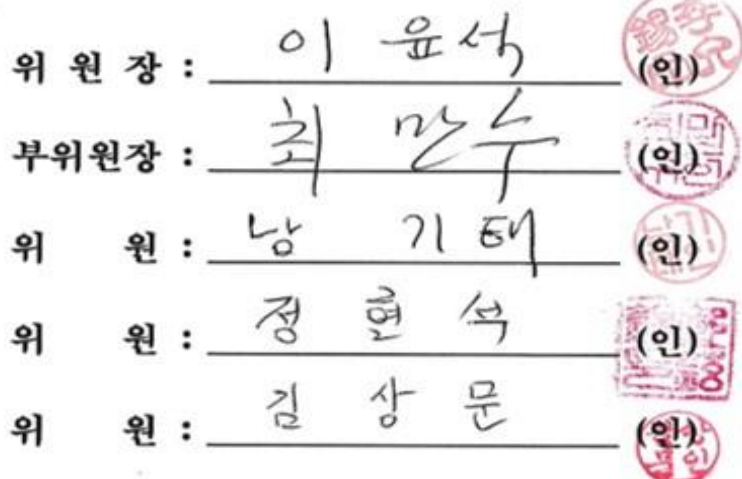 위 원 장 : 이 윤석 (인)
부위원장 : 최 만수 (인)
위 원 : 남 기태 (인)
위 원 : 정 현석 (인)
위 원 : 김 상 문 (인)